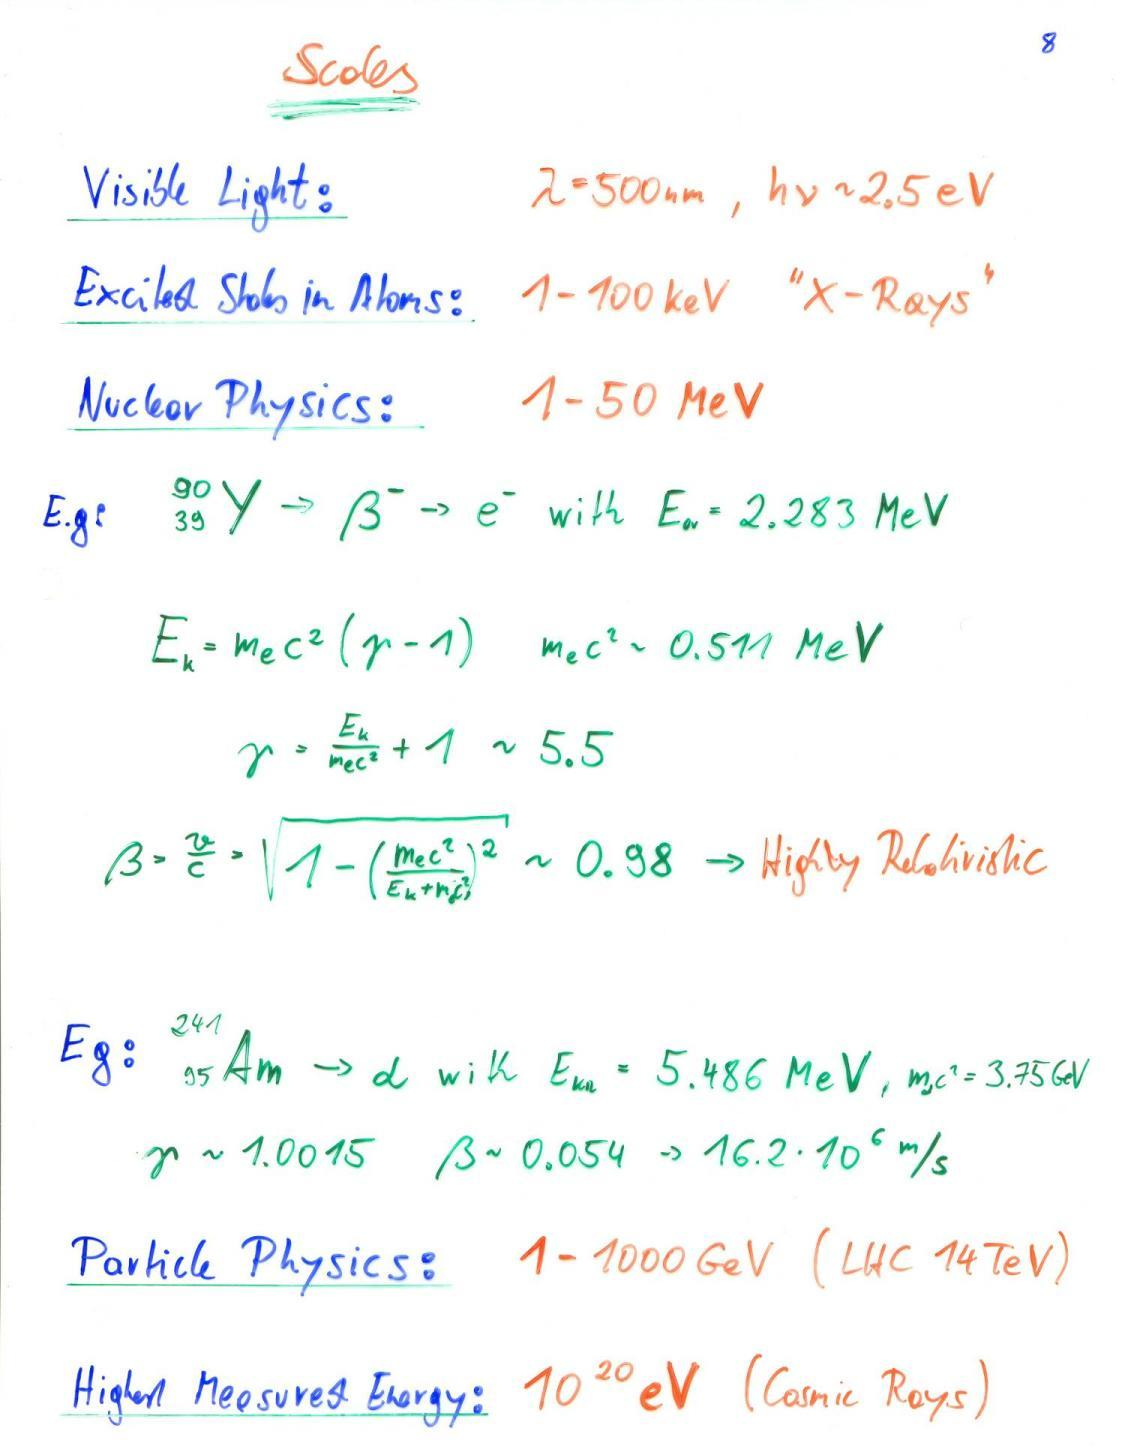 8
Scales
Visible Light: λ=500nm, hν ~2.5 eV
Excited States in Atoms: 1-100 keV "X-Rays"
Nuclear Physics: 1-50 MeV
E.g: ⁹⁰₃₉Y → β⁻ → e⁻ with Eₐᵥ = 2.283 MeV
Eₖ = mₑc² (γ-1) mₑc² ~ 0.511 MeV
γ = Eₖ/mₑc² + 1 ~ 5.5
β = v/c = √(1-(mₑc²/(Eₖ+mₑc²))²) ~ 0.98 → Highly Relativistic
Eg: ²⁴¹₉₅Am → α with Eₖᵢₙ = 5.486 MeV, mₐc² = 3.75 GeV
γ ~ 1.0015 β ~ 0.054 → 16.2·10⁶ m/s
Particle Physics: 1-1000 GeV (LHC 14 TeV)
Highest Measured Energy: 10²⁰ eV (Cosmic Rays)